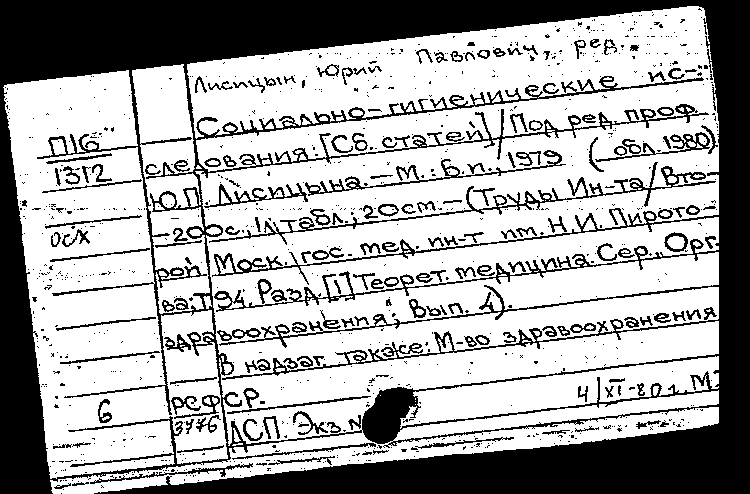 Лисицын, Юрий Павлович, ред.
Социально-гигиенические ис-
П16
1312
следования: [Сб. статей] / Под ред. проф.
Ю.П. Лисицына. – М.: Б.и., 1979 (обл. 1980)
осх
– 200с., 1л. табл.; 20см. – (Труды Ин-та / Вто-
рой Моск. гос. мед. ин-т им. Н.И. Пирого-
ва; Т. 94. Разд. [1] Теорет. медицина. Сер. „Орг.
здравоохранения“; Вып. 4).
В надзаг. также: М-во здравоохранения
6
РСФСР.
4/XI-80г. М
3776
ДСП. Экз. №